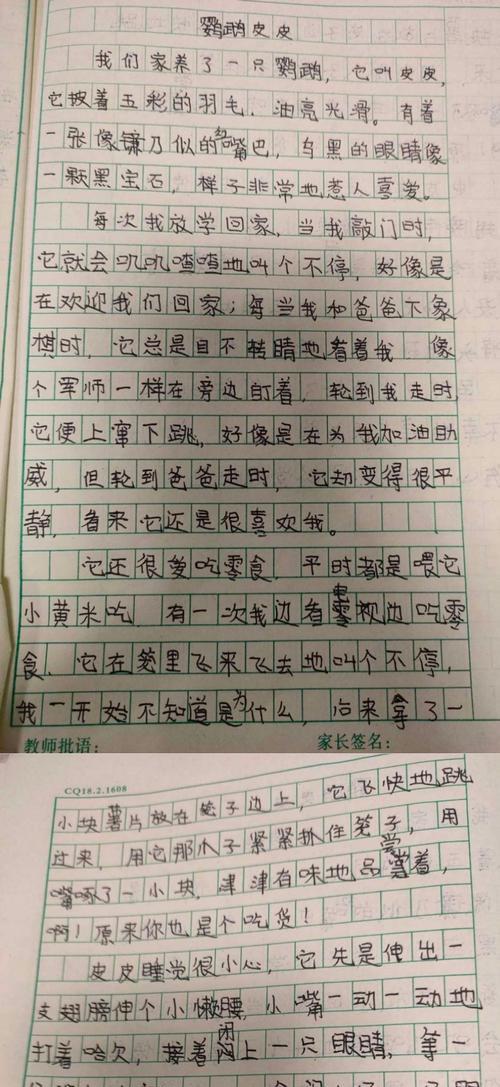 鹦鹉皮皮
我们家养了一只鹦鹉，它叫皮皮，
它披着五彩的羽毛，油亮光滑。有着
一张像镰刀似的嘴巴，乌黑的眼睛像
一颗黑宝石，样子非常地惹人喜爱。
每次我放学回家，当我敲门时，
它就会叽叽喳喳地叫个不停，好像是
在欢迎我们回家；每当我和爸爸下象
棋时，它总是目不转睛地看着我 像
个军师一样在旁边盯着，轮到我走时，
它便上窜下跳，好像是在为我加油助
威，但轮到爸爸走时，它却变得很平
静，看来它还是很喜欢我。
它还很爱吃零食，平时都是喂它
小黄米吃 有一次我边看电视边吃零
食，它在笼里飞来飞去地叫个不停，
我一开始不知道是为什么，后来拿了一
教师批语： 家长签名：
CQ18.2.1608
小块薯片放在笼子边上，它飞快地跳
过来，用它那爪子紧紧抓住笼子，用
嘴啄了一小块，津津有味地品尝着，
啊！原来你也是个吃货！
皮皮睡觉很小心，它先是伸出一
支翅膀伸个小懒腰，小嘴一动一动地
打着哈欠，接着闭上一只眼睛，等一